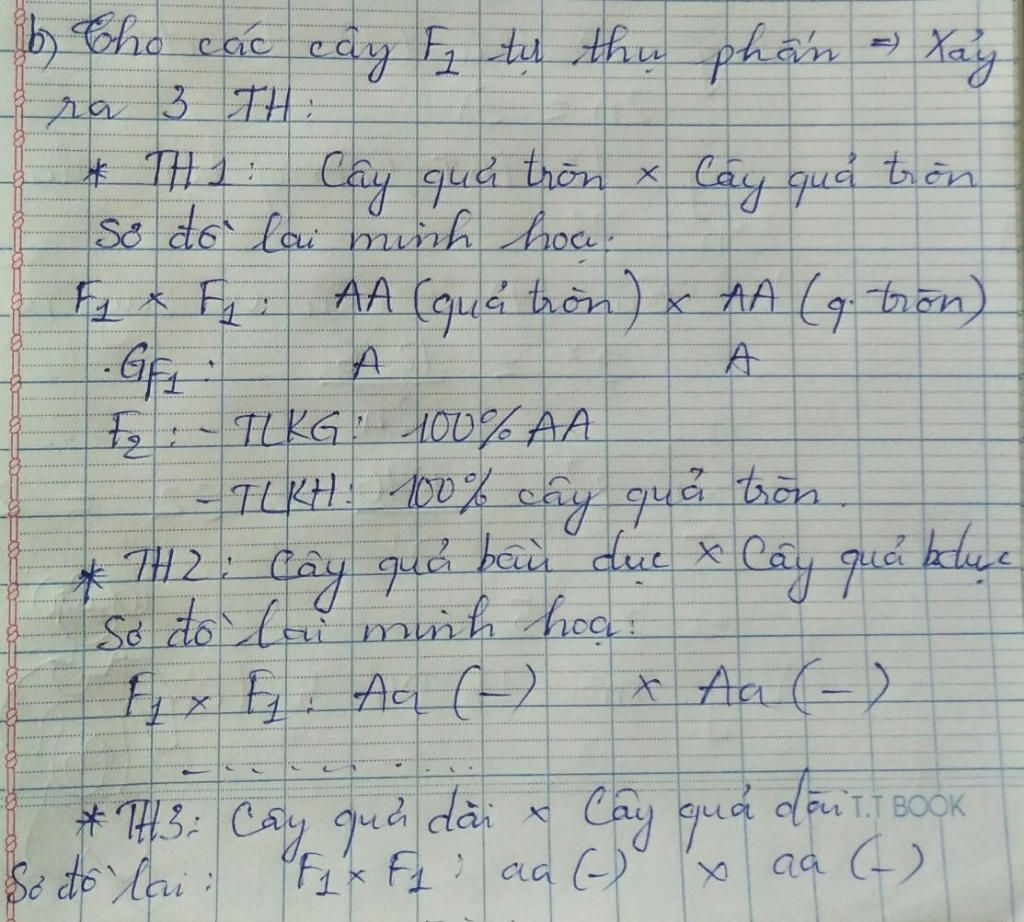 b) Cho các cây F1 tự thụ phấn => Xảy
ra 3 TH:
* TH1: Cây quả tròn x Cây quả tròn
Sơ đồ lai minh hoạ:
F1 x F1: AA (quả tròn) x AA (q. tròn)
GF1: A A
F2: - TLKG: 100% AA
- TLKH: 100% cây quả tròn.
* TH2: Cây quả bầu dục x Cây quả bdục
Sơ đồ lai minh hoạ:
F1 x F1: Aa (-) x Aa (-)
* TH3: Cây quả dài x Cây quả dài T.T BOOK
Sơ đồ lai: F1 x F1: aa (-) x aa (-)